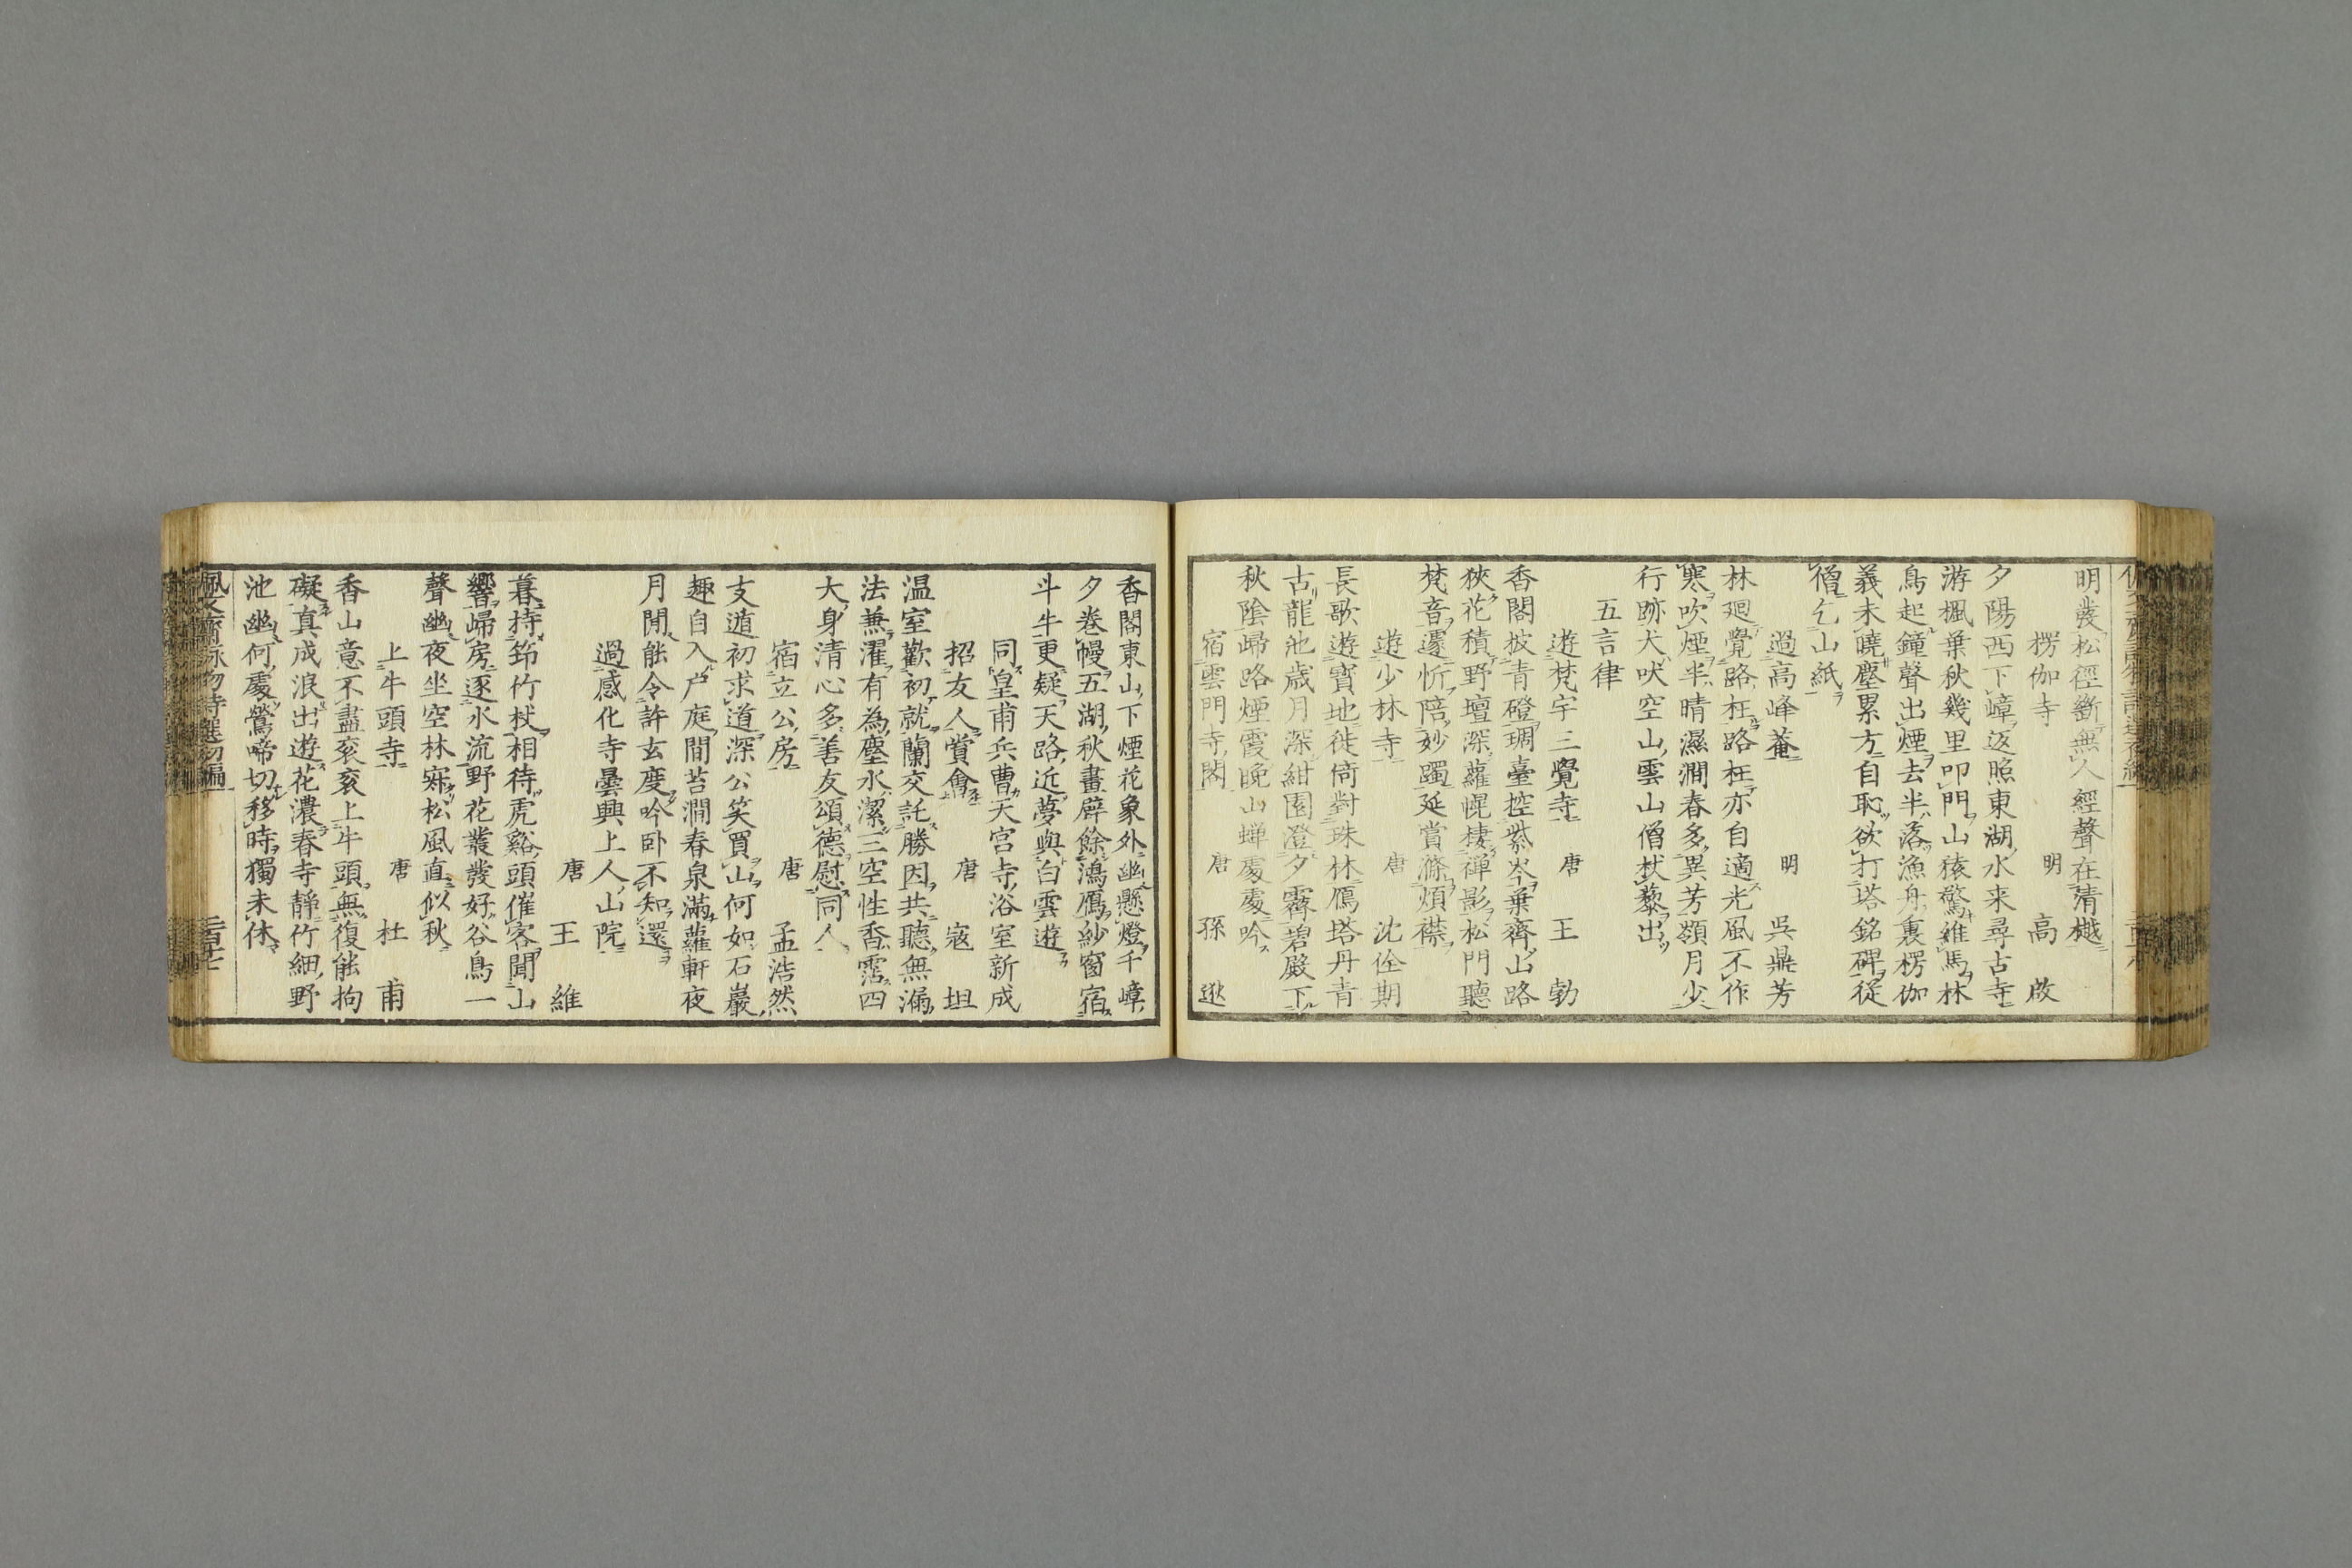 明發松徑斷無人經聲在清樾
楞伽寺　明　高　啟
夕陽西下嶂返照東湖水来尋古寺
游楓葉秋幾里叩門山猿驚維馬林
鳥起鐘聲出煙去半落漁舟裏楞伽
義未曉塵累方自恥欲打塔銘碑從
僧乞山紙
過高峰菴　明　吳鼎芳
林廻覺路枉路枉亦自適光風不作
寒吹煙半晴濕澗春多異芳嶺月少
行跡犬吠空山雲山僧杖藜出
五言律
遊梵宇三覺寺　唐　王　勃
香閣披青磴琱臺控紫岑葉齊山路
狹花積野壇深蘿幌棲禪影松門聽
梵音遽忻陪妙躅延賞滌煩襟
遊少林寺　唐　沈佺期
長歌遊寶地徙倚對珠林鴈塔丹青
古龍池歳月深紺園澄夕霽碧殿下
秋陰歸路煙霞晚山蟬處處吟
宿雲門寺閣　唐　孫　逖
香閣東山下煙花象外幽懸燈千嶂
夕巻幔五湖秋畫壁餘鴻鴈紗窗宿
斗牛更疑天路近夢與白雲遊
同皇甫兵曹天宮寺浴室新成
招友人賞會　唐　寇　坦
温室歡初就蘭交託勝因共聽無漏
法兼濯有為塵水潔三空性香霑四
大身清心多善友頌德慰同人
宿立公房　唐　孟浩然
支遁初求道深公笑買山何如石巖
趣自入戸庭間苔澗春泉滿蘿軒夜
月閒能令許玄度吟卧不知還
過感化寺曇興上人山院
唐　王　維
暮持筇竹杖相待虎谿頭催客聞山
響歸房逐水流野花叢發好谷鳥一
聲幽夜坐空林寂松風直似秋
上牛頭寺　唐　杜　甫
香山意不盡衮衮上牛頭無復能拘
礙真成浪出遊花濃春寺靜竹細野
池幽何處鶯啼切移時獨未休
佩文齋詠物詩選初編　二百七